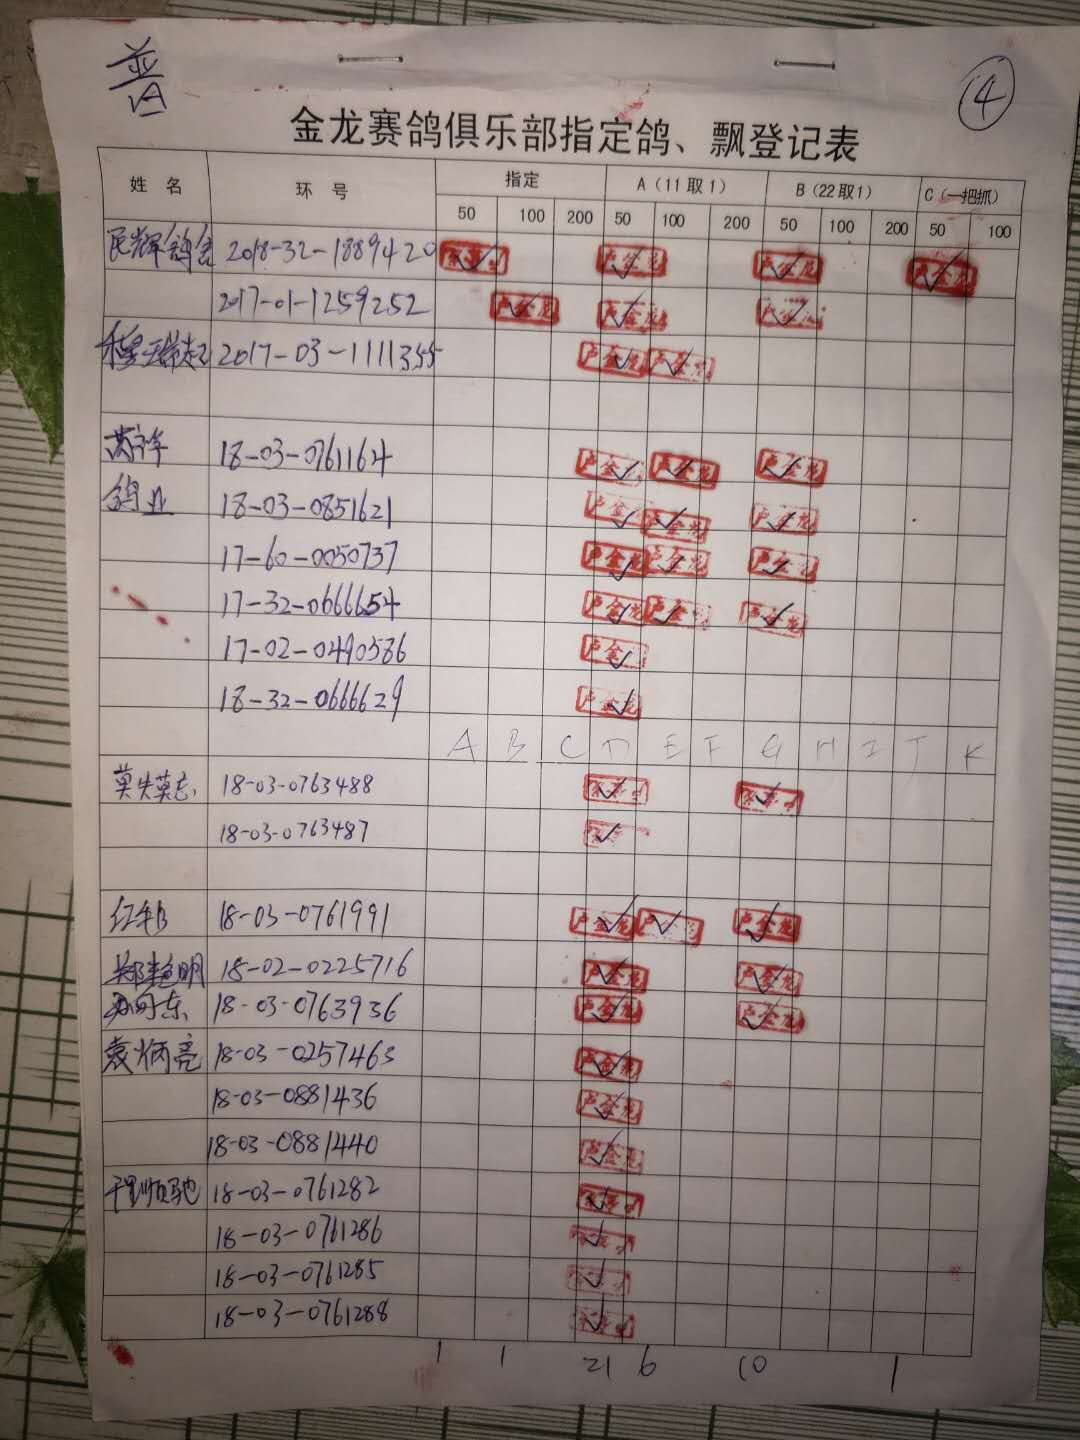 普
④
金龙赛鸽俱乐部指定鸽、飘登记表
姓 名 环 号 指定 A(11取1) B(22取1) C(一把抓)
50 100 200 50 100 200 50 100 200 50 100
民辉鸽舍 2018-32-1889420 卢金龙 卢金龙 卢金龙
2017-01-1259252 卢金龙 卢金龙
2017-03-1111355 卢金龙
18-03-0761164 卢金龙 卢金龙 卢金龙
鸽业 18-03-0851621 卢金龙 卢金龙 卢金龙
17-60-0050737 卢金龙 卢金龙 卢金龙
17-32-0666654 卢金龙 卢金龙 卢金龙
17-02-0490586 卢金
18-32-0666629 卢金龙
A B C D E F G H I J K
莫失莫忘 18-03-0763488
18-03-0763487
18-03-0761991 卢金龙 卢金龙
18-02-0225716 卢金龙 卢金龙
18-03-0763936 卢金龙 卢金龙
袁炳亮 18-03-0257463 卢金龙
18-03-0881436 卢金龙
18-03-0881440 卢金龙
程顺驰 18-03-0761282
18-03-0761286
18-03-0761285
18-03-0761288
1 1 21 6 10 1